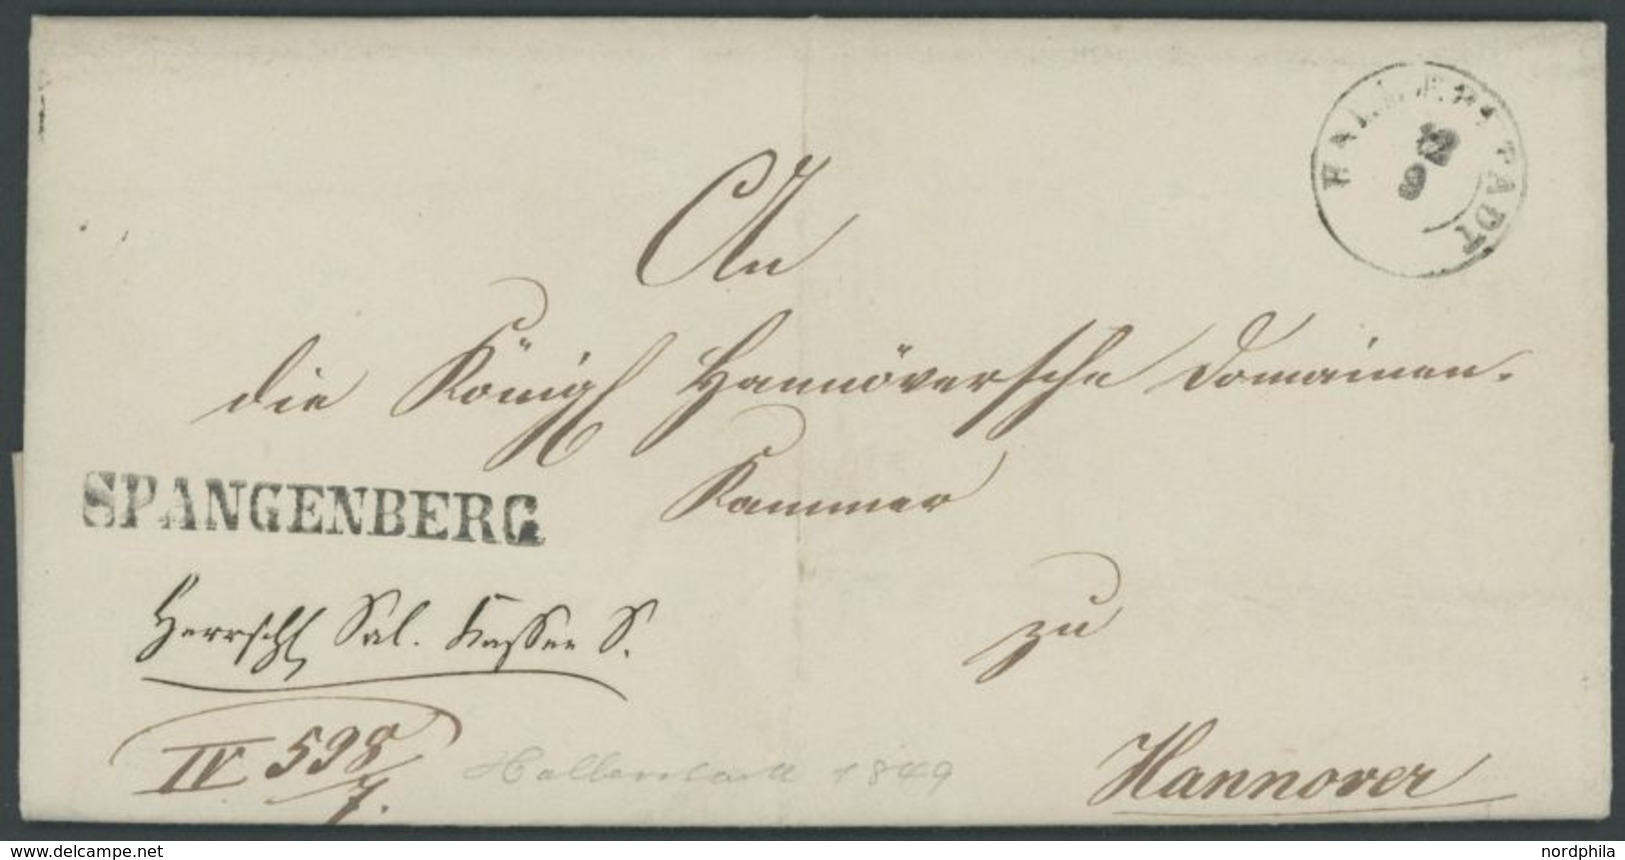 HALBERSTADT
12
9
An
die Königl Hannöversche Domainen-
Kammer
SPANGENBERG
Herrschl
zu
IV 598/7.
Halberstadt 1849
Hannover
www.delcampe.net
nordphila